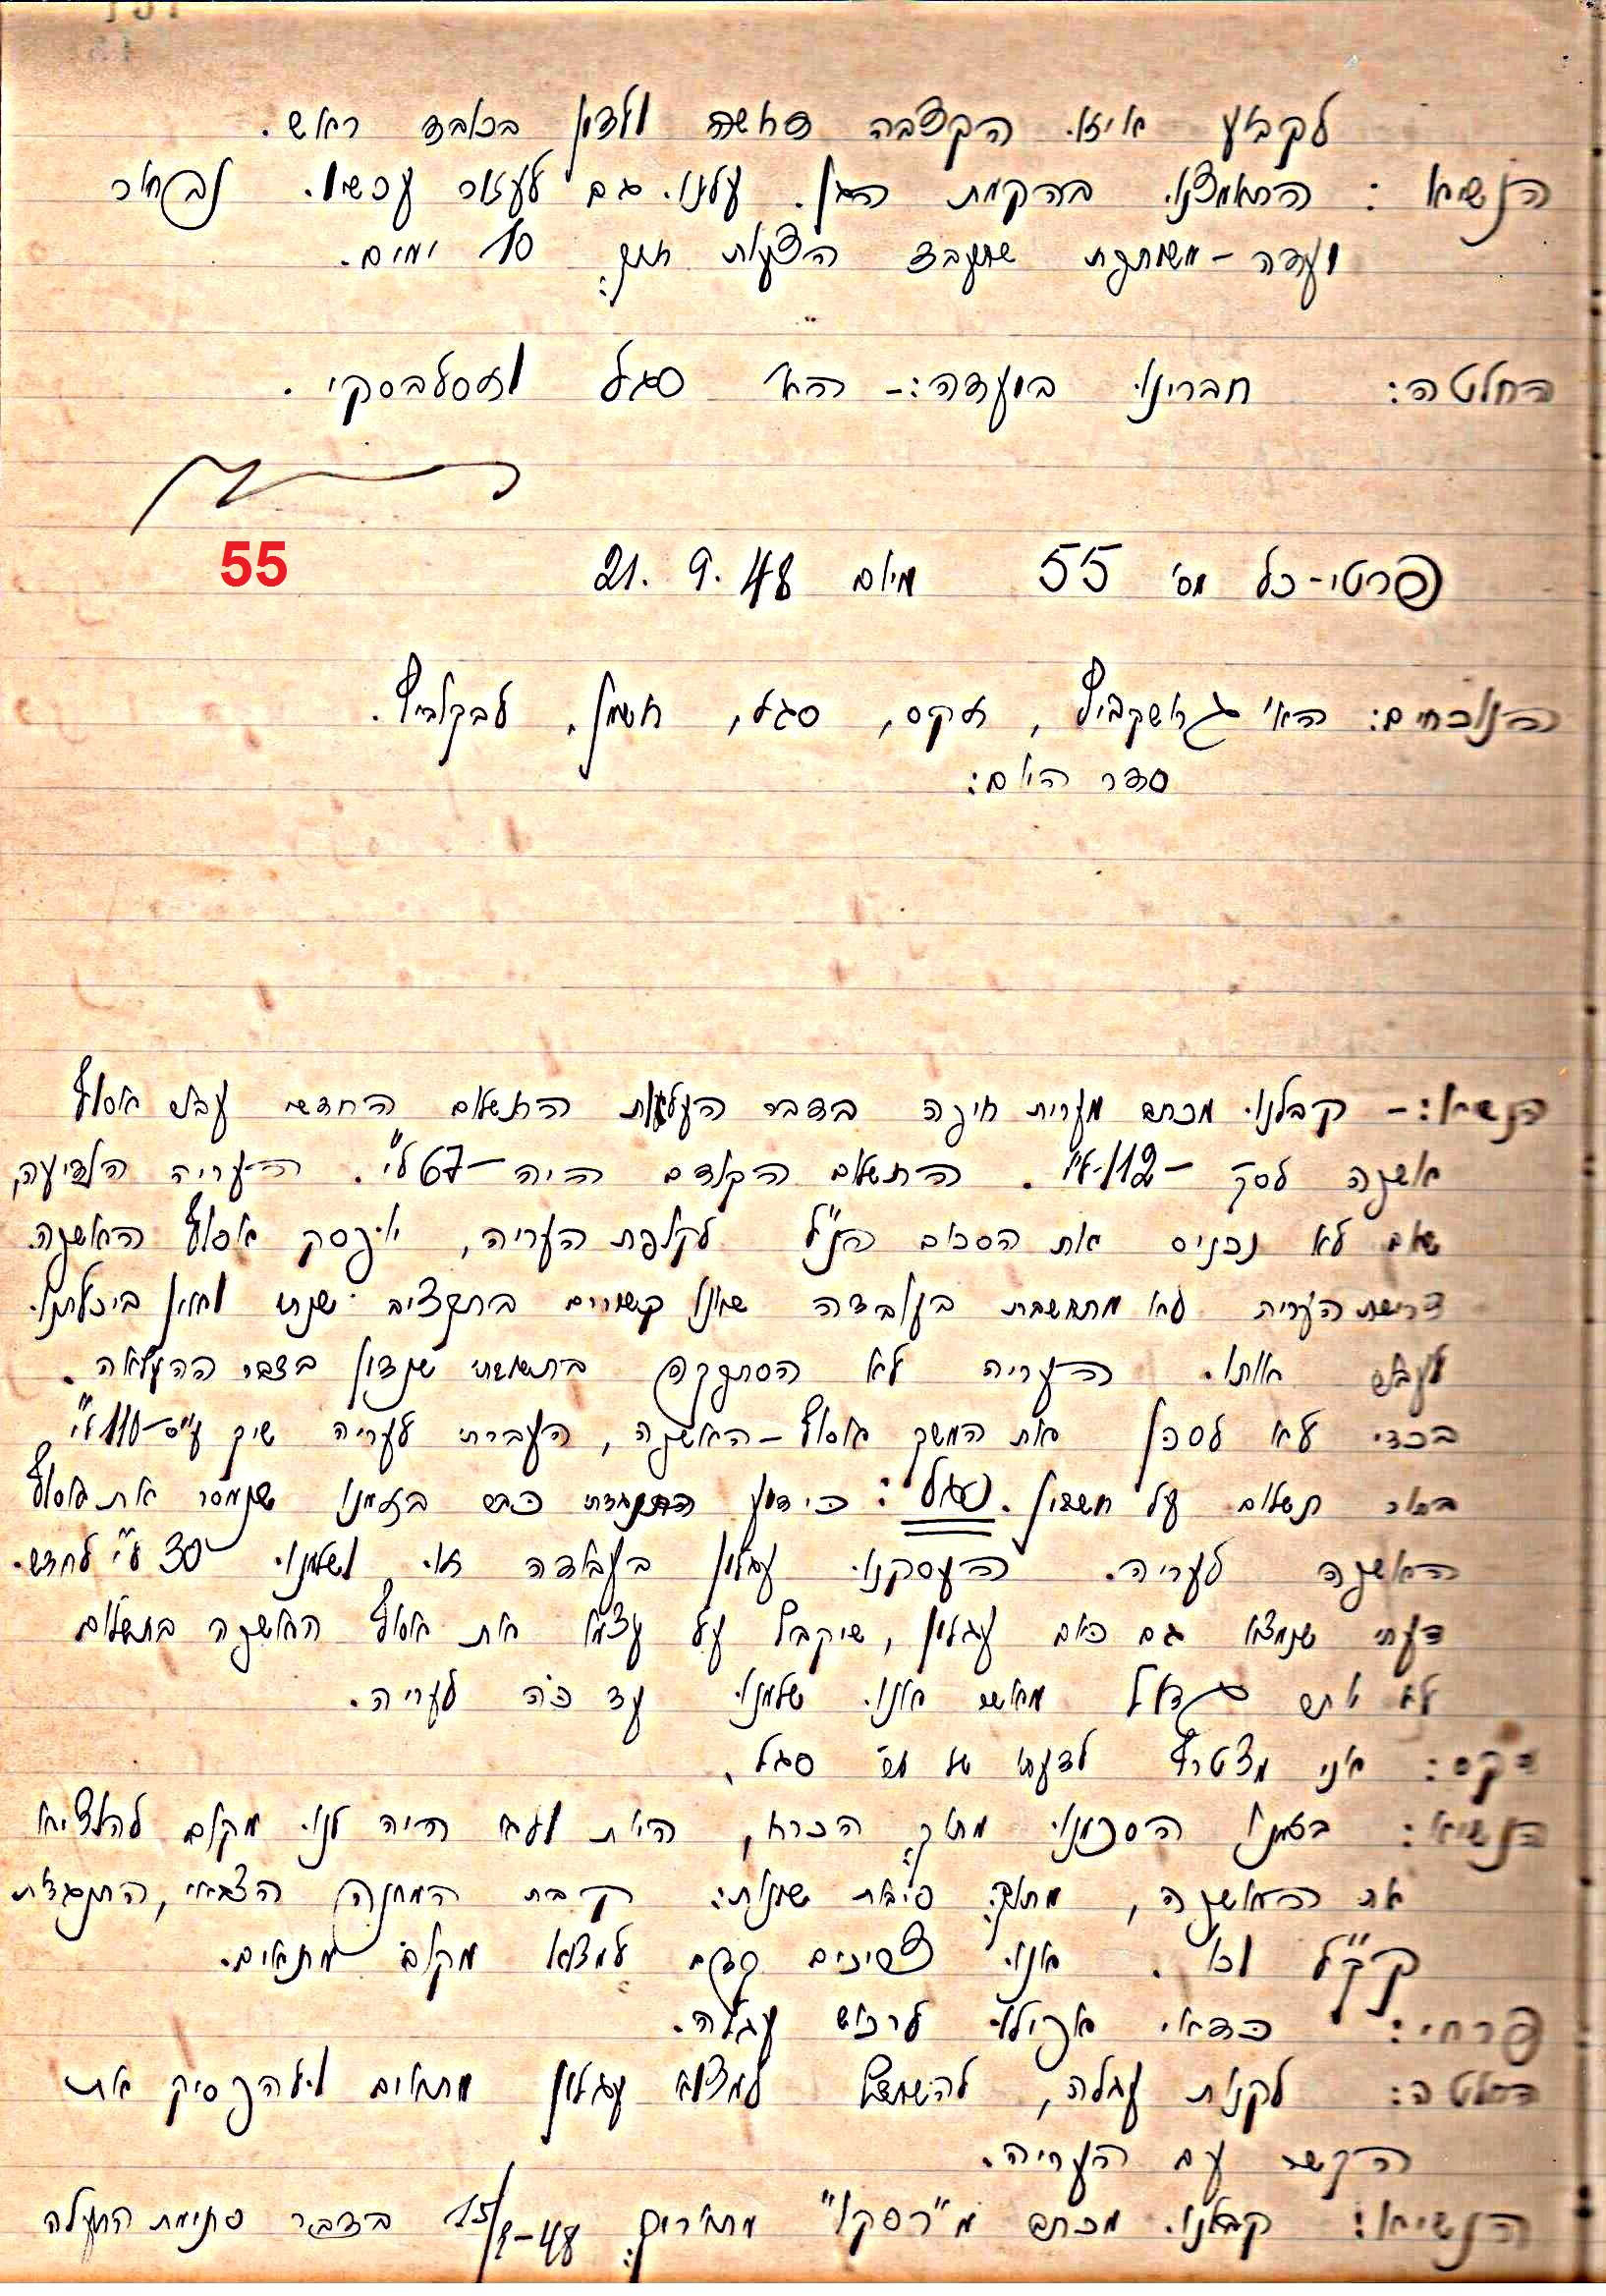 לקבוע איזו הקצבה שהיא ולדון בכובד ראש.
הנשיא: התאמצנו בהקמת הגן. עלינו גם לעזור עכשיו. נבחר
ועדה-משותפת שתעבד הצעות תוך 10 ימים.
החלטה: חברינו בועדה:- הה' סגל וזסלבסקי.
55
פרטי-כל מס' 55 מיום 21.9.48
הנוכחים: הה' גרשקביץ, זקס, סגל, חשמן, לבקוביץ.
סדר היום:
הנשיא:- קבלנו מכתב מערית חיפה בדבר העלאת התשלום החדשי עבור איסוף
אשפה לסך -112 לי". התשלום הקודם היה -67 לי". העריה הודיעה,
שאם לא נכניס את הסכום הנ"ל לקופת העריה, יופסק איסוף האשפה.
דרישת העריה לא מתחשבת בעובדה שאנו קשורים בתקציב שנתי ואין ביכלתנו
לעבור אותו. העריה לא הסתפקה בתשובתי שנדון בדבר ההעלאה.
בכדי לא לסכן את המשך איסוף-האשפה, העברתי לעריה שיק ע"ס -110 לי"
בתור תשלום על חשבון. סגל: כידוע התנגדתי כבר בזמנו שנמסר את איסוף
האשפה לעריה. העסקנו עגלון בעבודה זו ושלמנו 30 לי" לחדש.
דעתי שנמצא גם כיום עגלון, שיקבל על עצמו את איסוף האשפה בתשלום
לא יותר גדול מאשר אנו שלמנו עד כה לעריה.
זקס: אני מצטרף לדעתו של מר סגל.
הנשיא: בזמנו הסכמנו מתוך הכרח, היות ולא היה לנו מקום להוציא
את האשפה, מתוך סיבות שונות: קרבת המחנה הצבאי, התנגדות
קק"ל וכו'. אנו צריכים קודם למצוא מקום מתאים.
פרחי: כדאי אפילו לרכוש עגלה.
החלטה: לקנות עגלה, להשתדל למצוא עגלון מתאים ולהפסיק את
הקשר עם העריה.
הנשיא: קבלנו מכתב מ"רסקו" מתאריך 15/9-48 בדבר סתימת התעלה